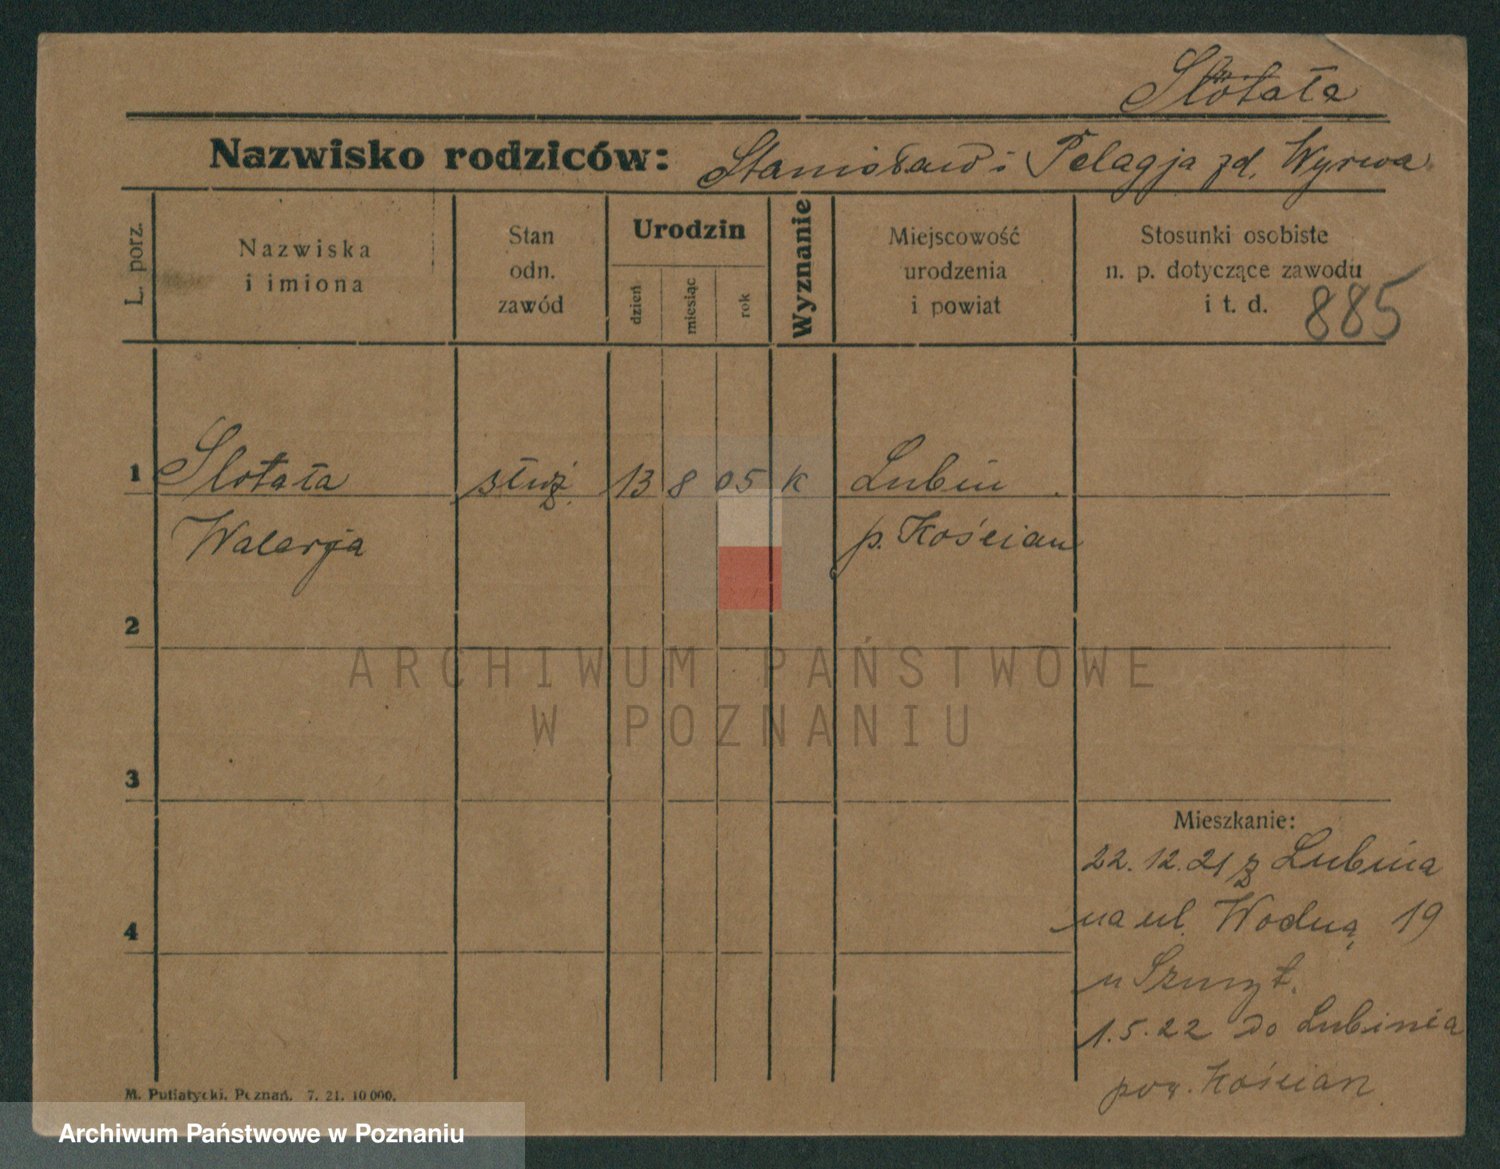 Slotała
Nazwisko rodziców: Stanisław i Pelagja zd. Wyrwa
L. porz.
Nazwiska
i imiona
Stan
odn.
zawód
Urodzin
dzień
miesiąc
rok
Wyznanie
Miejscowość
urodzenia
i powiat
Stosunki osobiste
n. p. dotyczące zawodu
i t. d.
885
1 Slotała służ. 13 8 05 k Lubiń
Walerja p. Kościan
2
3
4
Mieszkanie:
22.12.21 z Lubinia
na ul. Wodną 19
u
1.5.22 do Lubinia
pow. Kościan
M. Putiatycki, Poznań. 7. 21. 10 000.
ARCHIWUM PAŃSTWOWE
W POZNANIU
Archiwum Państwowe w Poznaniu